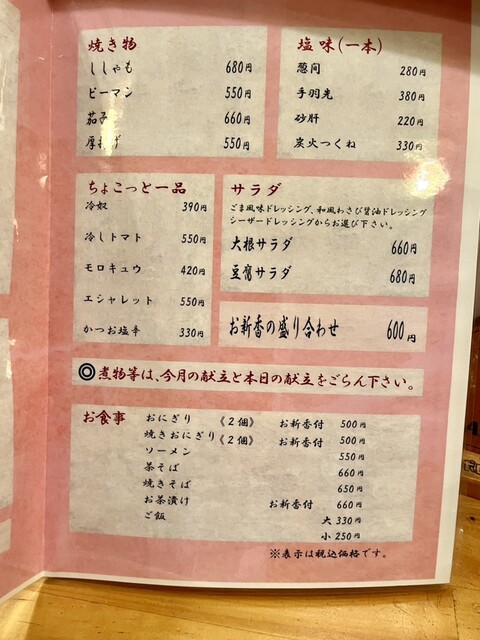 焼き物
ししゃも 680円
ピーマン 550円
茄子 660円
厚揚げ 550円
塩味(一本)
葱間 280円
手羽先 380円
砂肝 220円
炭火つくね 330円
ちょこっと一品
冷奴 390円
冷しトマト 550円
モロキュウ 420円
エシャレット 550円
かつお塩辛 330円
サラダ
ごま風味ドレッシング、和風わさび醤油ドレッシング
シーザードレッシングからお選び下さい。
大根サラダ 660円
豆腐サラダ 680円
お新香の盛り合わせ 600円
◎煮物等は、今月の献立と本日の献立をごらん下さい。
お食事
おにぎり 《2個》 お新香付 500円
焼きおにぎり《2個》 お新香付 500円
ソーメン 550円
茶そば 660円
焼きそば 650円
お茶漬け お新香付 660円
ご飯 大 330円
小 250円
※表示は税込価格です。